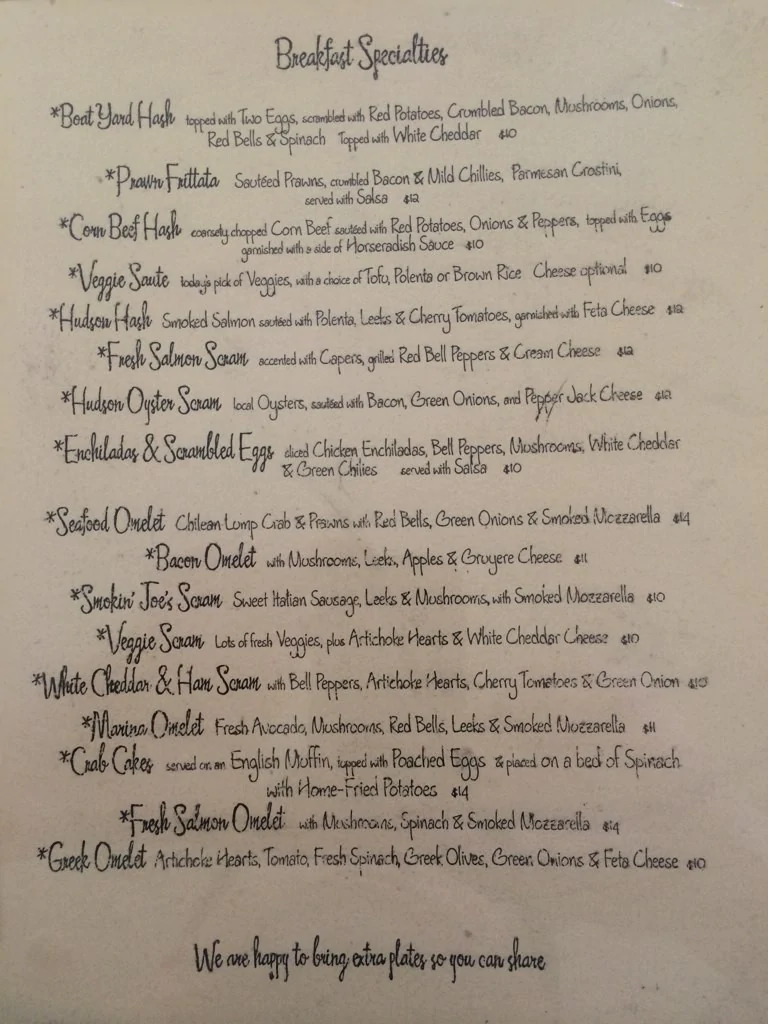 Breakfast Specialties
*Boat Yard Hash topped with Two Eggs, scrambled with Red Potatoes, Crumbled Bacon, Mushrooms, Onions,
Red Bells & Spinach Topped with White Cheddar $10
*Prawn Frittata Sautéed Prawns, crumbled Bacon & Mild Chillies, Parmesan Crostini,
served with Salsa $12
*Corn Beef Hash coarsely chopped Corn Beef sautéed with Red Potatoes, Onions & Peppers, topped with Eggs
garnished with a side of Horseradish Sauce $10
*Veggie Saute today's pick of Veggies, with a choice of Tofu, Polenta or Brown Rice Cheese optional $10
*Hudson Hash Smoked Salmon sautéed with Polenta, Leeks & Cherry Tomatoes, garnished with Feta Cheese $12
*Fresh Salmon Scram accented with Capers, grilled Red Bell Peppers & Cream Cheese $12
*Hudson Oyster Scram local Oysters, sautéed with Bacon, Green Onions, and Pepper Jack Cheese $12
*Enchiladas & Scrambled Eggs sliced Chicken Enchiladas, Bell Peppers, Mushrooms, White Cheddar
& Green Chilies served with Salsa $10
*Seafood Omelet Chilean Lump Crab & Prawns with Red Bells, Green Onions & Smoked Mozzarella $14
*Bacon Omelet with Mushrooms, Leeks, Apples & Gruyere Cheese $11
*Smokin' Joe's Scram Sweet Italian Sausage, Leeks & Mushrooms, with Smoked Mozzarella $10
*Veggie Scram Lots of fresh Veggies, plus Artichoke Hearts & White Cheddar Cheese $10
*White Cheddar & Ham Scram with Bell Peppers, Artichoke Hearts, Cherry Tomatoes & Green Onion $10
*Marina Omelet Fresh Avocado, Mushrooms, Red Bells, Leeks & Smoked Mozzarella $11
*Crab Cakes served on an English Muffin, topped with Poached Eggs & placed on a bed of Spinach
with Home-Fried Potatoes $14
*Fresh Salmon Omelet with Mushrooms, Spinach & Smoked Mozzarella $14
*Greek Omelet Artichoke Hearts, Tomato, Fresh Spinach, Greek Olives, Green Onions & Feta Cheese $10
We are happy to bring extra plates so you can share